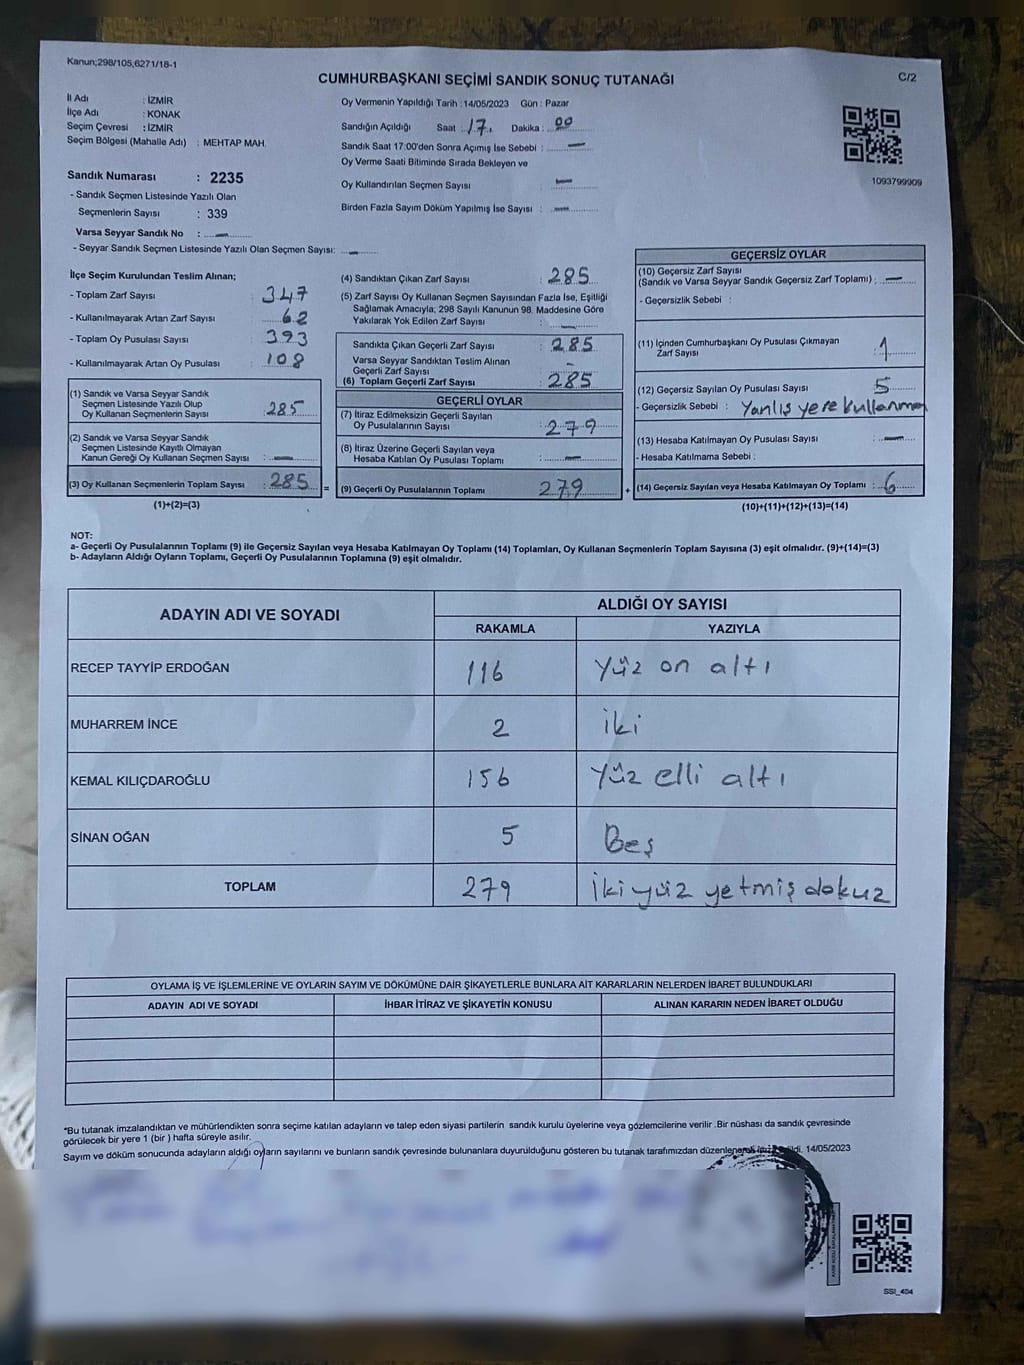 Kanun;298/105,6271/18-1
CUMHURBAŞKANI SEÇİMİ SANDIK SONUÇ TUTANAĞI
C/2
İl Adı : İZMİR
İlçe Adı : KONAK
Seçim Çevresi : İZMİR
Seçim Bölgesi (Mahalle Adı) : MEHTAP MAH.
Sandık Numarası : 2235
- Sandık Seçmen Listesinde Yazılı Olan
Seçmenlerin Sayısı : 339
Varsa Seyyar Sandık No : —
- Seyyar Sandık Seçmen Listesinde Yazılı Olan Seçmen Sayısı: —
Oy Vermenin Yapıldığı Tarih :14/05/2023 Gün : Pazar
Sandığın Açıldığı Saat : 17. Dakika : 00
Sandık Saat 17:00'den Sonra Açımış İse Sebebi : —
Oy Verme Saati Bitiminde Sırada Bekleyen ve
Oy Kullandırılan Seçmen Sayısı : —
Birden Fazla Sayım Döküm Yapılmış İse Sayısı : —
1093799909
İlçe Seçim Kurulundan Teslim Alınan;
- Toplam Zarf Sayısı : 347
- Kullanılmayarak Artan Zarf Sayısı : 62
- Toplam Oy Pusulası Sayısı : 393
- Kullanılmayarak Artan Oy Pusulası : 108
(1) Sandık ve Varsa Seyyar Sandık
Seçmen Listesinde Yazılı Olup
Oy Kullanan Seçmenlerin Sayısı : 285
(2) Sandık ve Varsa Seyyar Sandık
Seçmen Listesinde Kayıtlı Olmayan
Kanun Gereği Oy Kullanan Seçmen Sayısı : —
(3) Oy Kullanan Seçmenlerin Toplam Sayısı : 285 =
(1)+(2)=(3)
(4) Sandıktan Çıkan Zarf Sayısı : 285
(5) Zarf Sayısı Oy Kullanan Seçmen Sayısından Fazla İse, Eşitliği
Sağlamak Amacıyla; 298 Sayılı Kanunun 98. Maddesine Göre
Yakılarak Yok Edilen Zarf Sayısı : —
Sandıkta Çıkan Geçerli Zarf Sayısı : 285
Varsa Seyyar Sandıktan Teslim Alınan
Geçerli Zarf Sayısı : –
(6) Toplam Geçerli Zarf Sayısı : 285
GEÇERLİ OYLAR
(7) İtiraz Edilmeksizin Geçerli Sayılan
Oy Pusulalarının Sayısı : 279
(8) İtiraz Üzerine Geçerli Sayılan veya
Hesaba Katılan Oy Pusulası Toplamı : —
(9) Geçerli Oy Pusulalarının Toplamı 279 +
GEÇERSİZ OYLAR
(10) Geçersiz Zarf Sayısı
(Sandık ve Varsa Seyyar Sandık Geçersiz Zarf Toplamı) : —
- Geçersizlik Sebebi :
(11) İçinden Cumhurbaşkanı Oy Pusulası Çıkmayan
Zarf Sayısı : 1
(12) Geçersiz Sayılan Oy Pusulası Sayısı : 5
- Geçersizlik Sebebi : Yanlış yere kullanma
(13) Hesaba Katılmayan Oy Pusulası Sayısı : —
- Hesaba Katılmama Sebebi :
(14) Geçersiz Sayılan veya Hesaba Katılmayan Oy Toplamı : 6
(10)+(11)+(12)+(13)=(14)
NOT:
a- Geçerli Oy Pusulalarının Toplamı (9) ile Geçersiz Sayılan veya Hesaba Katılmayan Oy Toplamı (14) Toplamları, Oy Kullanan Seçmenlerin Toplam Sayısına (3) eşit olmalıdır. (9)+(14)=(3)
b- Adayların Aldığı Oyların Toplamı, Geçerli Oy Pusulalarının Toplamına (9) eşit olmalıdır.
ADAYIN ADI VE SOYADI ALDIĞI OY SAYISI
RAKAMLA YAZIYLA
RECEP TAYYİP ERDOĞAN 116 Yüz on altı
MUHARREM İNCE 2 İki
KEMAL KILIÇDAROĞLU 156 Yüz elli altı
SİNAN OĞAN 5 Beş
TOPLAM 279 İki yüz yetmiş dokuz
OYLAMA İŞ VE İŞLEMLERİNE VE OYLARIN SAYIM VE DÖKÜMÜNE DAİR ŞİKAYETLERLE BUNLARA AİT KARARLARIN NELERDEN İBARET BULUNDUKLARI
ADAYIN ADI VE SOYADI İHBAR İTİRAZ VE ŞİKAYETİN KONUSU ALINAN KARARIN NEDEN İBARET OLDUĞU
*Bu tutanak imzalandıktan ve mühürlendikten sonra seçime katılan adayların ve talep eden siyasi partilerin sandık kurulu üyelerine veya gözlemcilerine verilir .Bir nüshası da sandık çevresinde
görülecek bir yere 1 (bir ) hafta süreyle asılır.
Sayım ve döküm sonucunda adayların aldığı oyların sayılarını ve bunların sandık çevresinde bulunanlara duyurulduğunu gösteren bu tutanak tarafımızdan düzenlenerek 14/05/2023
SSI_404